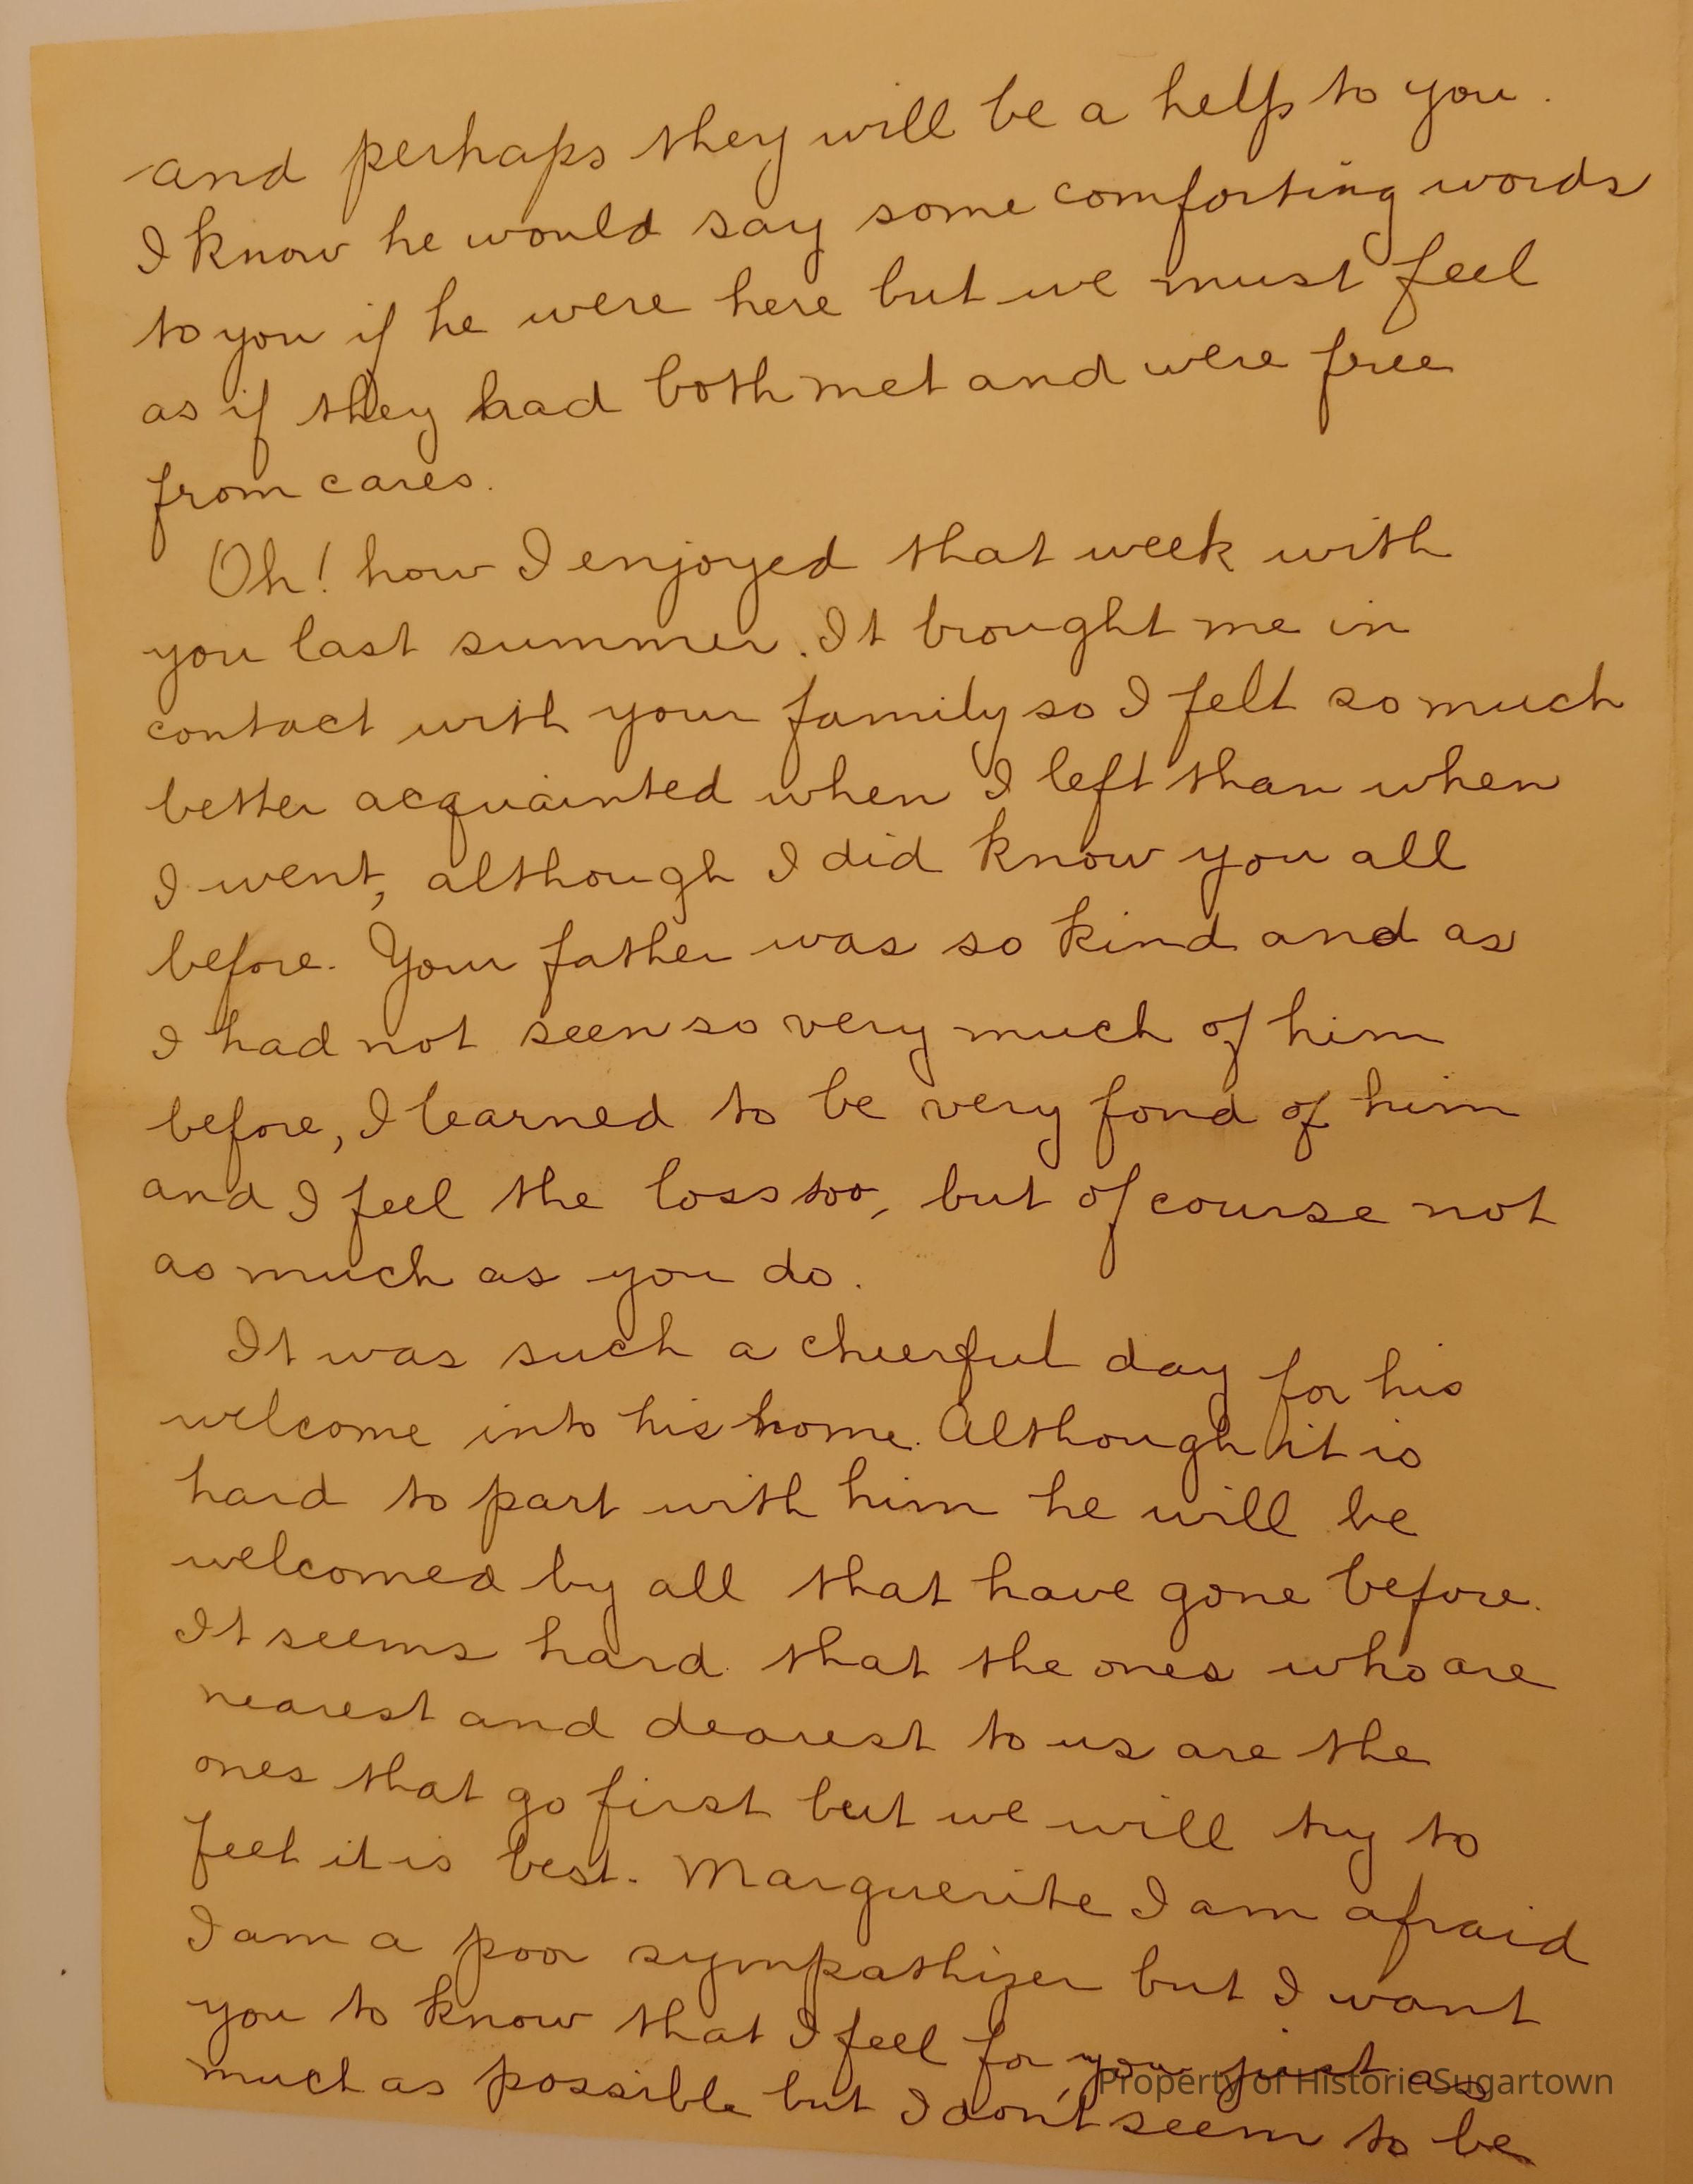 and perhaps they will be a help to you.
I know he would say some comforting words
to you if he were here but we must feel
as if they had both met and were free
from cares.
Oh! how I enjoyed that week with
you last summer. It brought me in
contact with your family so I felt so much
better acquainted when I left than when
I went, although I did know you all
before. Your father was so kind and as
I had not seen so very much of him
before, I learned to be very fond of him
and I feel the loss too, but of course not
as much as you do.
It was such a cheerful day for his
welcome into his home. Although it is
hard to part with him he will be
welcomed by all that have gone before.
It seems hard that the ones who are
nearest and dearest to us are the
ones that go first but we will try to
feel it is best. Marguerite I am afraid
I am a poor sympathizer but I want
you to know that I feel for you just as
much as possible but I don't seem to be
Property of Historic Sugartown